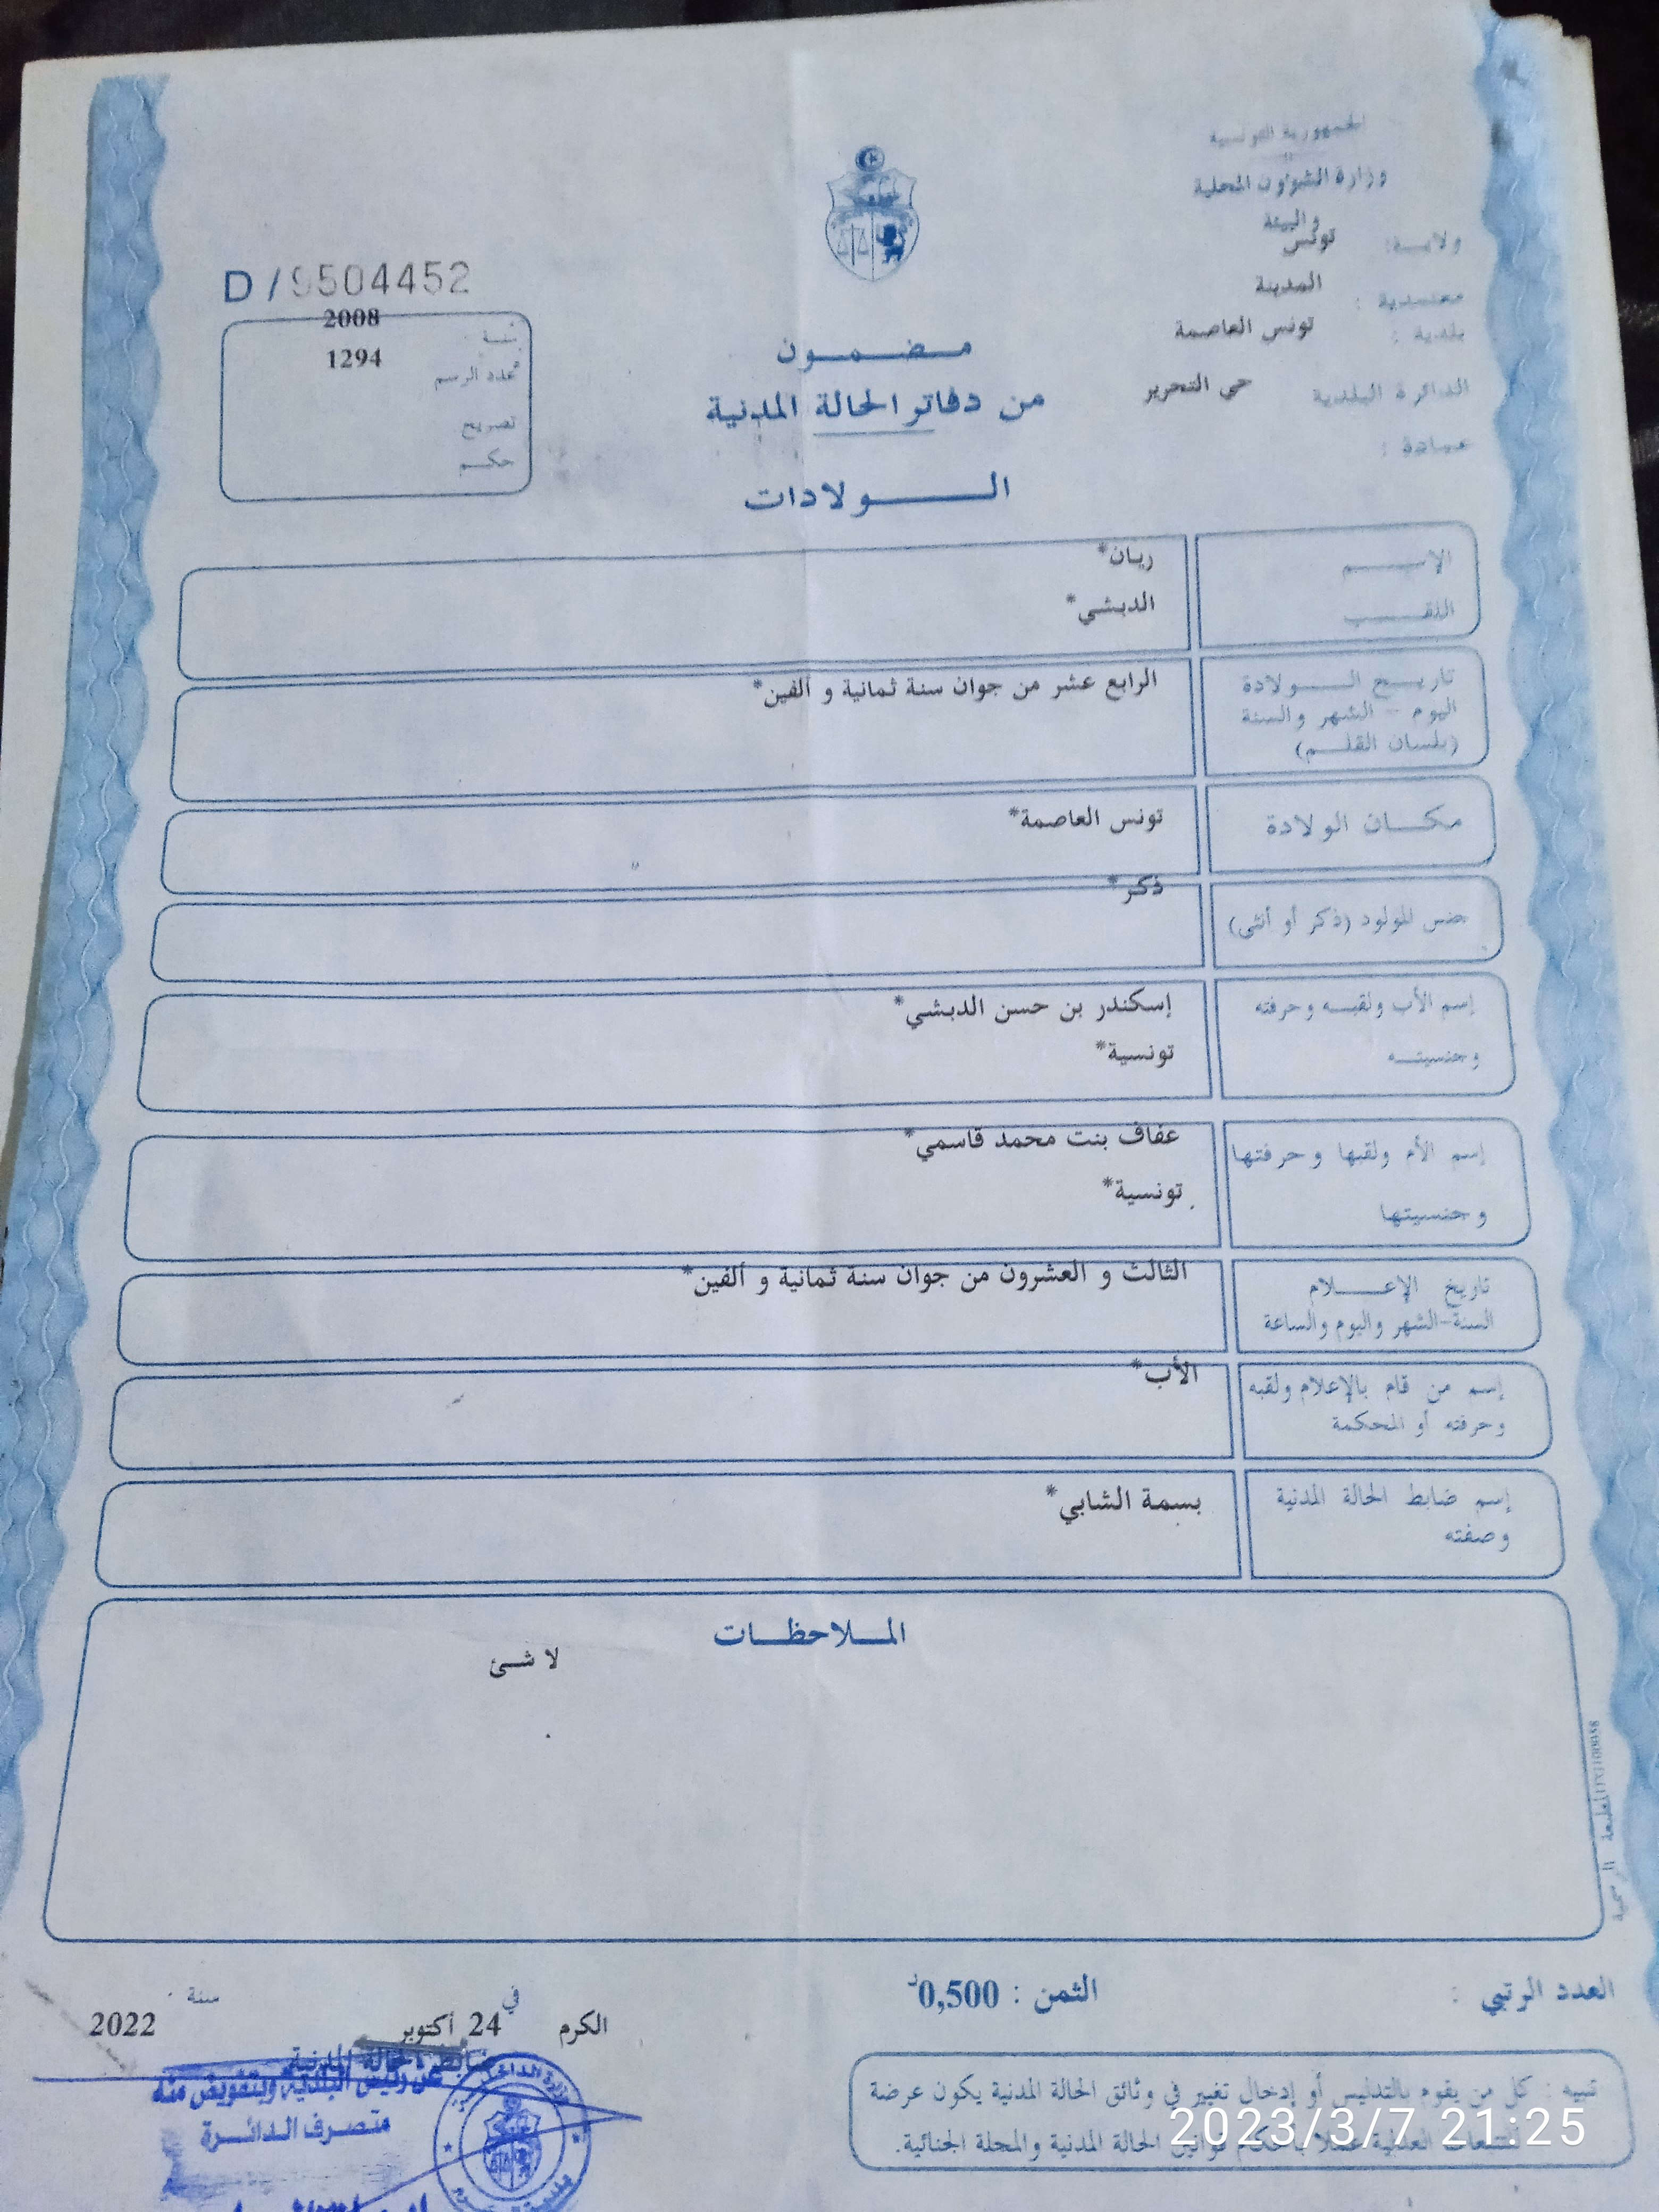 الجمهورية التونسية
وزارة الشؤون المحلية
والبيئة
ولاية: تونس
معتمدية : المدينة
بلدية : تونس العاصمة
الدائرة البلدية حي التحرير
عمادة :
D / 9504452
سنة 2008
عدد الرسم 1294
تصريح
حكم
مضمون
من دفاتر الحالة المدنية
الولادات
الإسم ريان*
اللقب الدبشي*
تاريخ الولادة الرابع عشر من جوان سنة ثمانية و ألفين*
اليوم - الشهر والسنة
(بلسان القلم)
مكان الولادة تونس العاصمة*
جنس المولود (ذكر أو أنثى) ذكر*
إسم الأب ولقبه وحرفته إسكندر بن حسن الدبشي*
وجنسيته تونسية*
إسم الأم ولقبها وحرفتها عفاف بنت محمد قاسمي*
وجنسيتها تونسية*
تاريخ الإعلام الثالث و العشرون من جوان سنة ثمانية و ألفين*
السنة-الشهر واليوم والساعة
إسم من قام بالإعلام ولقبه الأب*
وحرفته أو المحكمة
إسم ضابط الحالة المدنية بسمة الشابي*
وصفته
الملاحظات
لا شئ
المطبعة الرسمية
العدد الرتبي :
الثمن : 0,500د
الكرم في 24 أكتوبر سنة 2022
ضابط الحالة المدنية
عن رئيس البلدية وبتفويض منه
متصرف الدائرة
تنبيه : كل من يقوم بالتدليس أو إدخال تغيير في وثائق الحالة المدنية يكون عرضة
للتتبعات العدلية عملا بأحكام قوانين الحالة المدنية والمجلة الجنائية.
2023/3/7 21:25